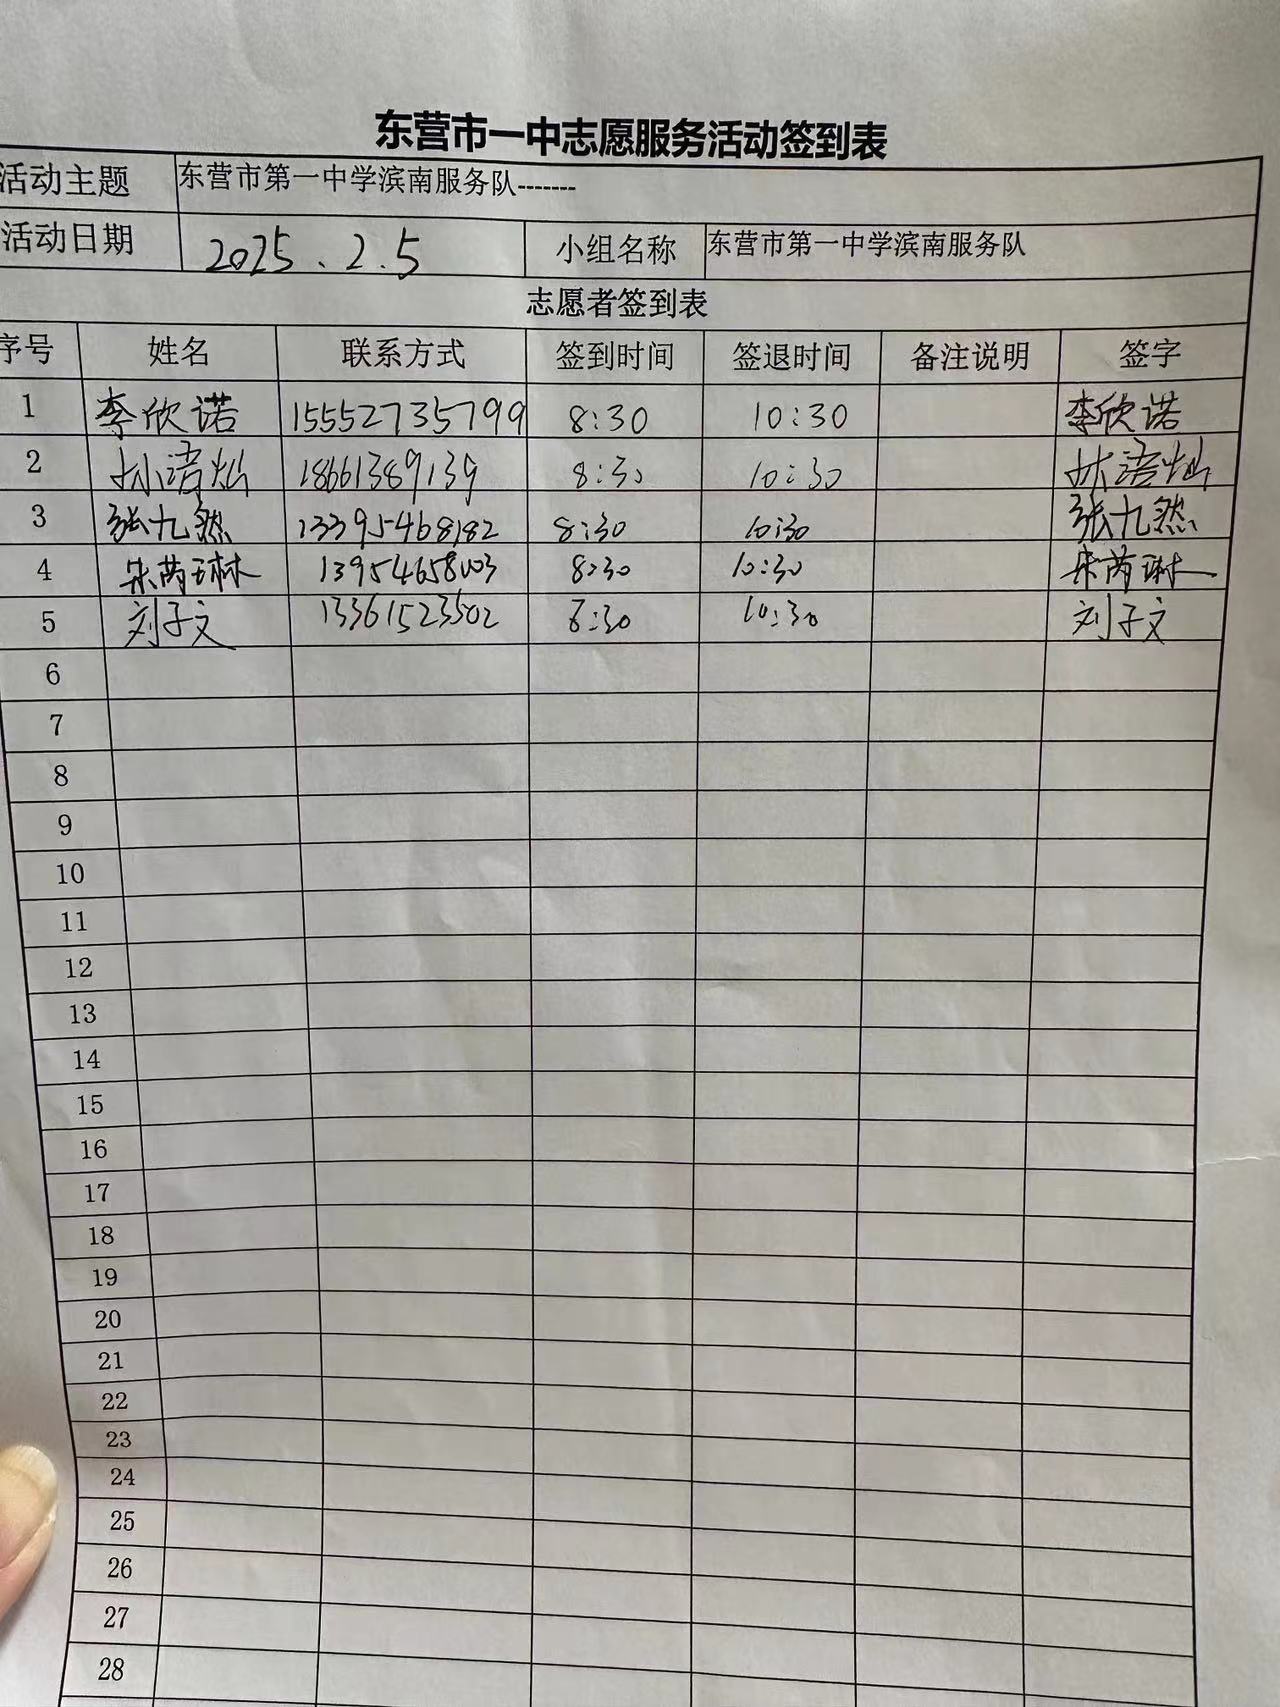 东营市一中志愿服务活动签到表
活动主题 东营市第一中学滨南服务队-------
活动日期 2025.2.5 小组名称 东营市第一中学滨南服务队
志愿者签到表
序号 姓名 联系方式 签到时间 签退时间 备注说明 签字
1 李欣诺 15552735799 8:30 10:30 李欣诺
2 18661389139 8:30 10:30
3 张九然 13395468182 8:30 10:30 张九然
4 芮琳 8:30 10:30 芮琳
5 刘子文 13361523502 8:30 10:30 刘子文
6
7
8
9
10
11
12
13
14
15
16
17
18
19
20
21
22
23
24
25
26
27
28